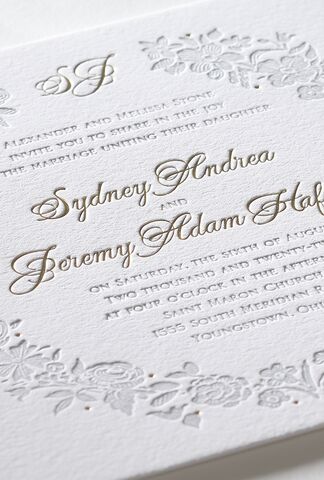 SJ
Alexander and Melissa Stone
invite you to share in the joy
the marriage uniting their daughter
Sydney Andrea
and
Jeremy Adam Haf
on Saturday, the sixth of Augu
Two thousand and twenty-tw
at four o'clock in the after
Saint Maron Church
1555 South Meridian R
Youngstown, Ohi